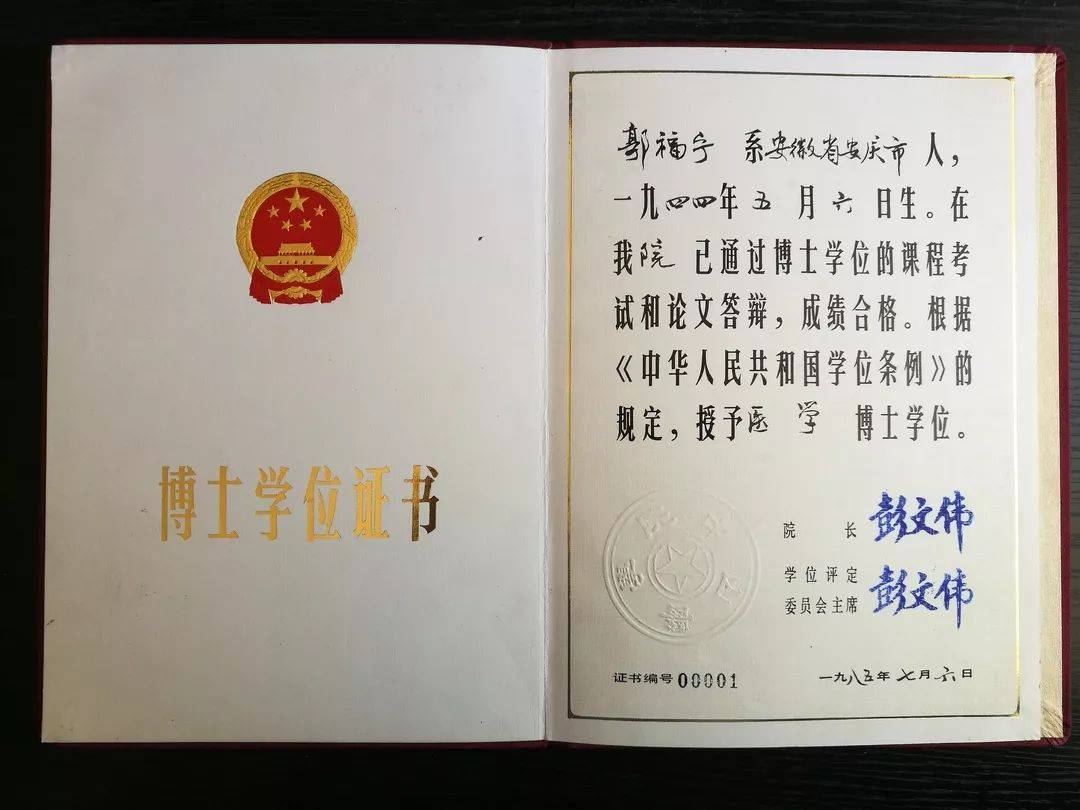 博士学位证书
郭福宁 系安徽省安庆市 人，
一九四四年 五 月 六 日生。在
我院 已通过博士学位的课程考
试和论文答辩，成绩合格。根据
《中华人民共和国学位条例》的
规定，授予医学 博士学位。
院 长 彭文伟
学位评定
委员会主席 彭文伟
证书编号 00001
一九八五年七月六日